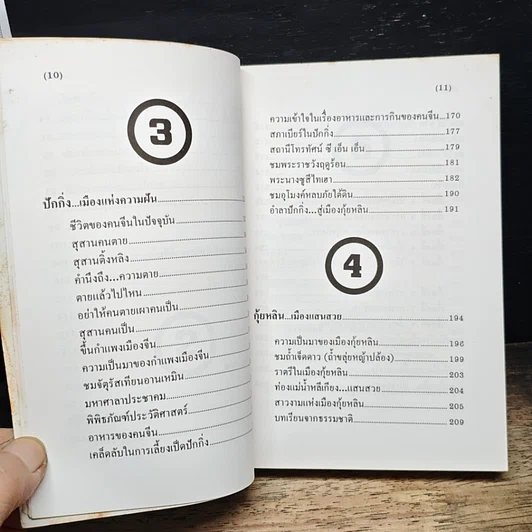 (10)
3
ปักกิ่ง...เมืองแห่งความฝัน
ชีวิตของคนจีนในปัจจุบัน
สุสานคนตาย
สุสานติ้งหลิง
คำนึงถึง...ความตาย
ตายแล้วไปไหน
อย่าให้คนตายเผาคนเป็น
สุสานคนเป็น
ขึ้นกำแพงเมืองจีน
ความเป็นมาของกำแพงเมืองจีน
ชมจัตุรัสเทียนอานเหมิน
มหาศาลาประชาคม
พิพิธภัณฑ์ประวัติศาสตร์
อาหารของคนจีน
เคล็ดลับในการเลี้ยงเป็ดปักกิ่ง
(11)
ความเข้าใจในเรื่องอาหารและการกินของคนจีน 170
สภาเบียร์ในปักกิ่ง 177
สถานีโทรทัศน์ ซี เอ็น เอ็น 179
ชมพระราชวังฤดูร้อน 181
พระนางซูสีไทเฮา 182
ชมอุโมงค์หลบภัยใต้ดิน 190
อำลาปักกิ่ง...สู่เมืองกุ้ยหลิน 191
4
กุ้ยหลิน...เมืองแสนสวย 194
ความเป็นมาของเมืองกุ้ยหลิน 196
ชมถ้ำเจ็ดดาว (ถ้ำขลุ่ยหญ้าปล้อง) 199
ราตรีในเมืองกุ้ยหลิน 203
ท่องแม่น้ำหลีเกียง...แสนสวย 204
สาวงามแห่งเมืองกุ้ยหลิน 205
บทเรียนจากธรรมชาติ 209